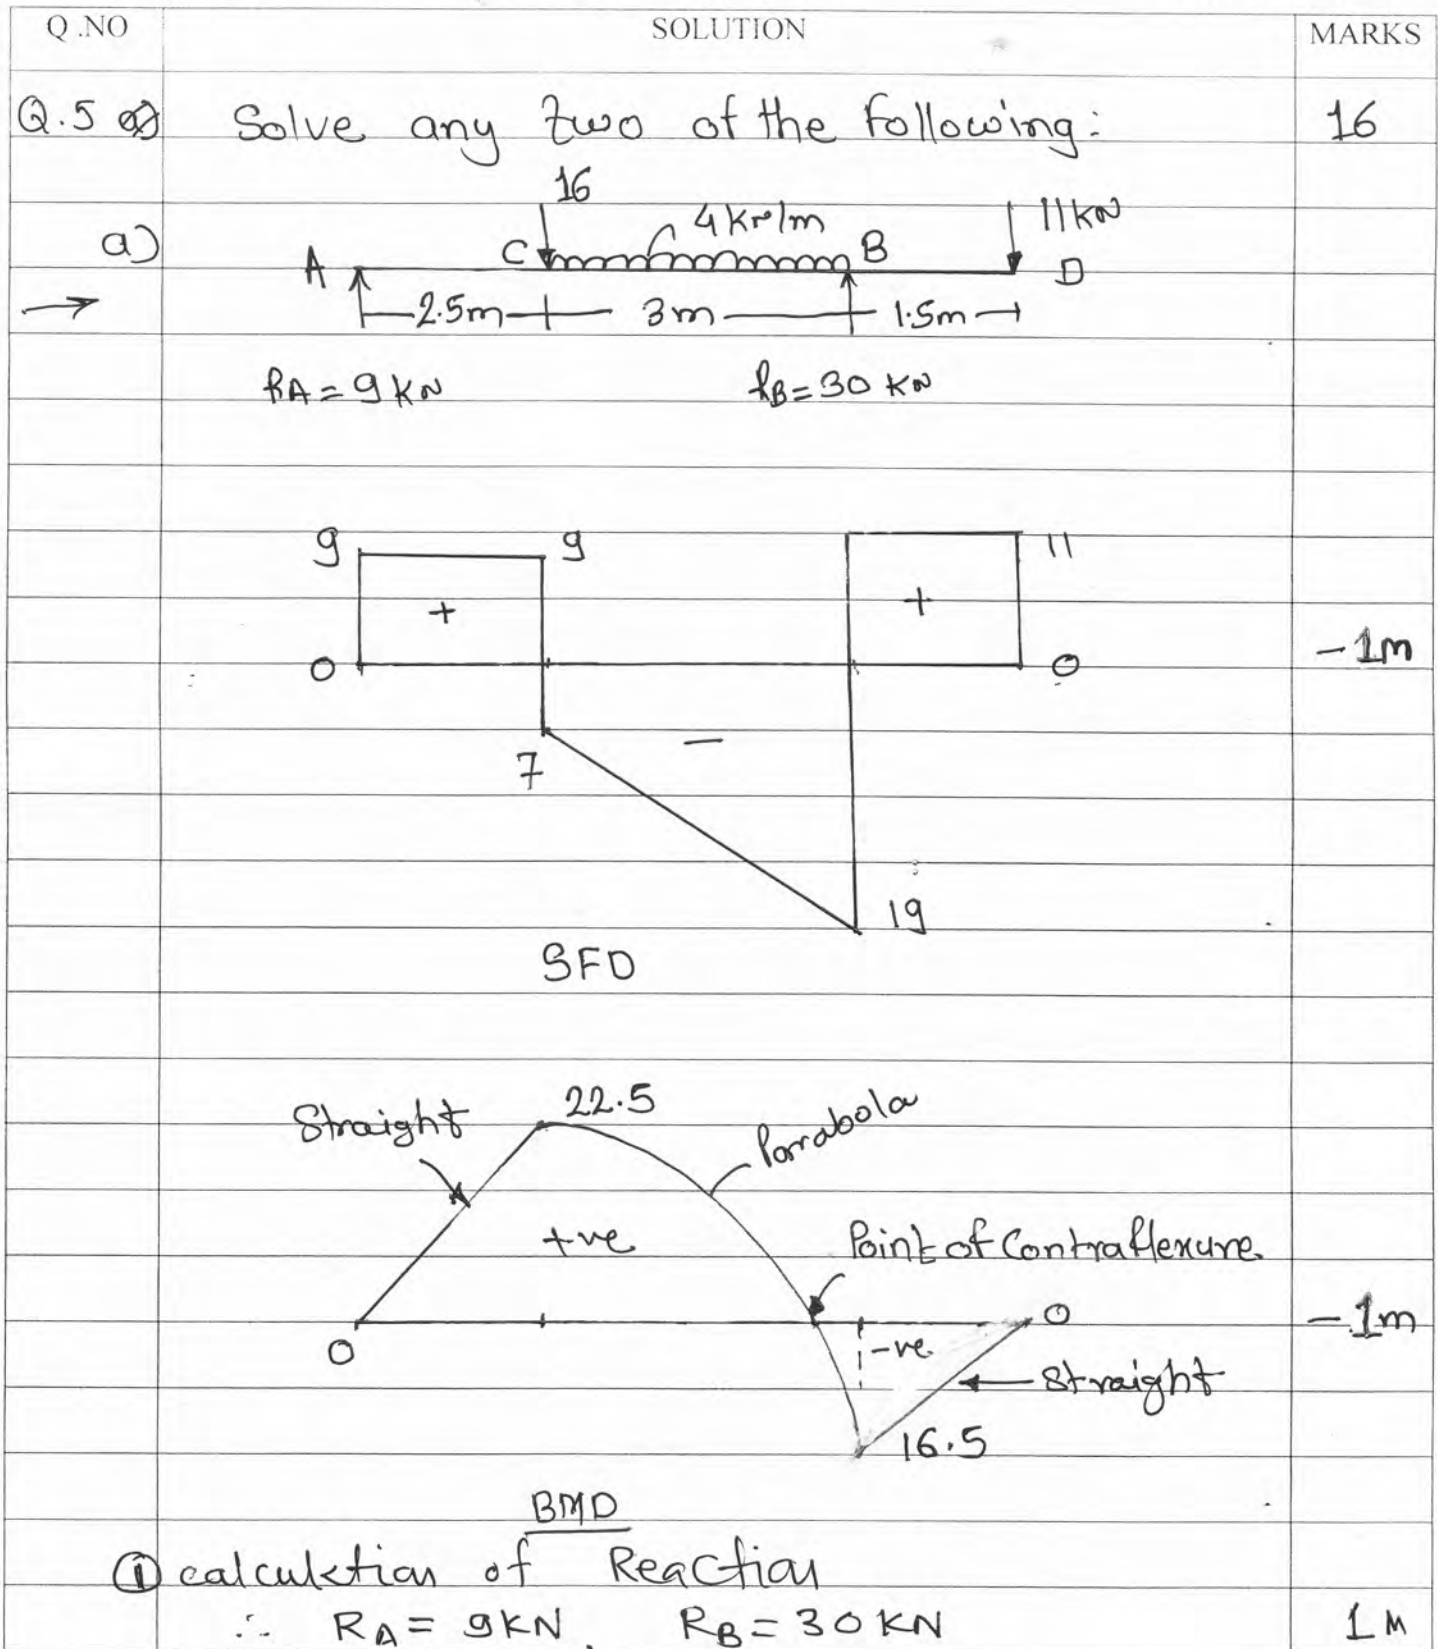 Q.NO SOLUTION MARKS
Q.5 Solve any two of the following: 16
16
4KN/m 11KN
a) A C B D
2.5m 3m 1.5m
RA=9KN RB=30KN
9 9 11
+ +
0 0 -1m
7 -
19
SFD
Straight 22.5 Parabola
+ve Point of Contraflexure.
0 0 -1m
-ve. Straight
16.5
BMD
① calculation of Reaction
∴ RA= 9KN, RB=30KN 1M